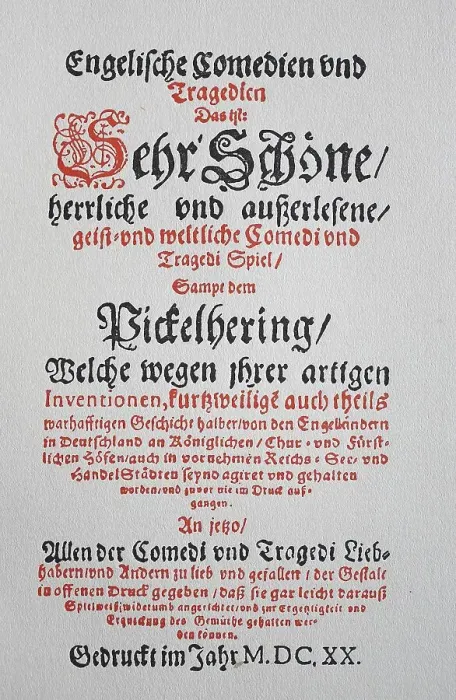 Engelische Comedien vnd
Tragedien
Das ist:
Sehr Schöne/
herrliche vnd außerlesene/
geist- vnd weltliche Comedi vnd
Tragedi Spiel/
Sampt dem
Pickelhering/
Welche wegen jhrer artigen
Inventionen, kurtzweiligē auch theils
warhafftigen Geschicht halber/von den Engelländern
in Deutschland an Königlichen/Chur- vnd Fürst-
lichen Höfen/auch in vornehmen Reichs- See- vnd
HandelStädten seynd agiret vnd gehalten
worden/vnd zuvor nie im Druck auß-
gangen.
An jetzo/
Allen der Comedi vnd Tragedi Lieb-
habern/vnd Andern zu lieb vnd gefallen/der Gestalt
in offenen Druck gegeben/daß sie gar leicht darauß
Spielweiß widerumb angerichtet/vnd zur Ergetzligkeit vnd
Erquickung des Gemüths gehalten wer-
den können.
Gedruckt im Jahr M. DC. XX.